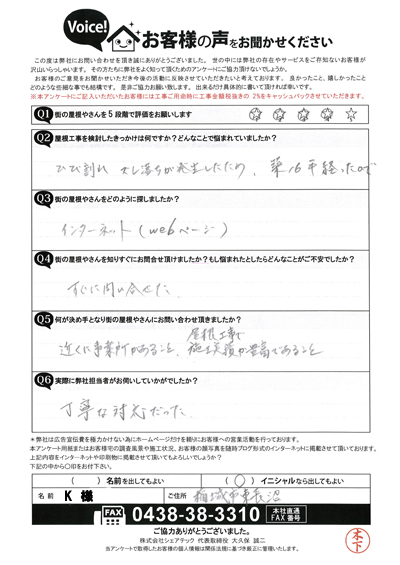 Voice!
お客様の声をお聞かせください
この度は弊社にお問い合わせを頂き誠にありがとうございました。 世の中には弊社の存在やサービスをご存知ないお客様が
沢山いらっしゃいます。 その方たちに弊社をよく知って頂くためのアンケートにご協力頂けないでしょうか。
お客様のご意見をお聞かせいただき今後の活動に反映させていただきたいと考えております。 良かったこと、嬉しかったこと
どのような些細な事でも結構です。 是非ご協力お願い致します。 出来るだけ具体的に書いて頂ければ幸いです。
※本アンケートにご記入いただいたお客様には工事ご用命時に工事金額税抜きの 2%をキャッシュバックさせていただきます。
Q1 街の屋根やさんを5段階で評価をお願いします
Q2 屋根工事を検討したきっかけは何ですか?どんなことで悩まれていましたか?
ひび割れ ズレ落ちが発生したため、築16年経ったので
Q3 街の屋根やさんをどのように探しましたか?
インターネット(webページ)
Q4 街の屋根やさんを知りすぐにお問合せ頂けましたか?もし悩まれたとしたらどんなことがご不安でしたか?
すぐに問い合せた。
Q5 何が決め手となり街の屋根やさんにお問い合わせ頂きましたか?
屋根工事で
近くに事業所があること、施工実績が豊富であること
Q6 実際に弊社担当者がお伺いしていかがでしたか?
丁寧な対応だった。
*弊社は広告宣伝費を極力かけない為にホームページだけを頼りにお客様への営業活動を行っております。
本アンケート用紙またはお客様宅の調査風景や施工状況、お客様の顔写真を随時ブログ形式のインターネットに掲載させて頂いております。
上記内容をインターネットや印刷物に掲載させて頂いてもよろしいでしょうか?
下記の中から〇印をお付下さい。
( )名前を出してもよい (○)イニシャルなら出してもよい
名前 K 様 ご住所 稲城市東長沼
FAX 0438-38-3310 本社直通 FAX番号
ご協力ありがとうございました。
株式会社シェアテック 代表取締役 大久保 誠二
当アンケートで取得したお客様の個人情報は関係法規に基づき厳正に管理いたします。
木下